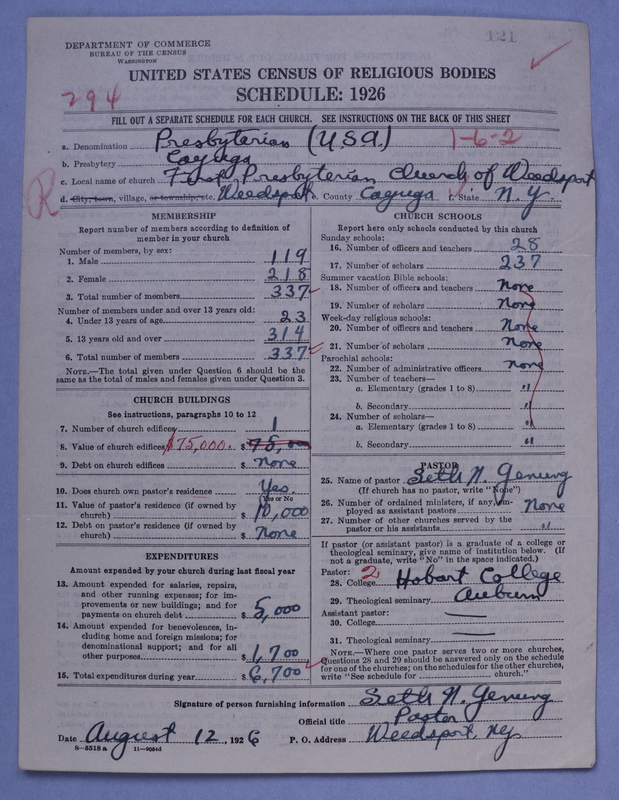 121
DEPARTMENT OF COMMERCE
BUREAU OF THE CENSUS
WASHINGTON
UNITED STATES CENSUS OF RELIGIOUS BODIES
294
SCHEDULE: 1926
FILL OUT A SEPARATE SCHEDULE FOR EACH CHURCH. SEE INSTRUCTIONS ON THE BACK OF THIS SHEET
a. Denomination Presbyterian (U.S.A.) 1-6-2
b. Presbytery Cayuga
c. Local name of church First Presbyterian Church of Weedsport
R
d. City, town, village, or township, etc. Weedsport e. County Cayuga f. State N.Y.
MEMBERSHIP
Report number of members according to definition of
member in your church
Number of members, by sex:
1. Male 119
2. Female 218
3. Total number of members 337
Number of members under and over 13 years old:
4. Under 13 years of age 23
5. 13 years old and over 314
6. Total number of members 337
NOTE.—The total given under Question 6 should be
the same as the total of males and females given under Question 3.
CHURCH BUILDINGS
See instructions, paragraphs 10 to 12
7. Number of church edifices 1
8. Value of church edifices $75,000. $ 75,000
9. Debt on church edifices $ None
10. Does church own pastor's residence Yes.
Yes or No
11. Value of pastor's residence (if owned by
church) $ 10,000
12. Debt on pastor's residence (if owned by
church) $ None
EXPENDITURES
Amount expended by your church during last fiscal year
13. Amount expended for salaries, repairs,
and other running expenses; for im-
provements or new buildings; and for
payments on church debt $ 5,000
14. Amount expended for benevolences, in-
cluding home and foreign missions; for
denominational support; and for all
other purposes $ 1,700
15. Total expenditures during year $ 6,700
CHURCH SCHOOLS
Report here only schools conducted by this church
Sunday schools:
16. Number of officers and teachers 28
17. Number of scholars 237
Summer vacation Bible schools:
18. Number of officers and teachers None
19. Number of scholars None
Week-day religious schools:
20. Number of officers and teachers None
21. Number of scholars None
Parochial schools:
22. Number of administrative officers None
23. Number of teachers—
a. Elementary (grades 1 to 8) "
b. Secondary "
24. Number of scholars—
a. Elementary (grades 1 to 8) "
b. Secondary "
PASTOR
25. Name of pastor Seth N. Genung
(If church has no pastor, write "None")
26. Number of ordained ministers, if any, em-
ployed as assistant pastors None
27. Number of other churches served by the
pastor or his assistants "
If pastor (or assistant pastor) is a graduate of a college or
theological seminary, give name of institution below. (If
not a graduate, write "No" in the space indicated.)
Pastor: 2
28. College Hobart College
29. Theological seminary Auburn
Assistant pastor:
30. College —
31. Theological seminary —
NOTE.—Where one pastor serves two or more churches,
Questions 28 and 29 should be answered only on the schedule
for one of the churches; on the schedules for the other churches,
write "See schedule for church."
Signature of person furnishing information Seth N. Genung
Official title Pastor
Date August 12, 1926 P. O. Address Weedsport, N.Y.
8—5518 a 11—9054d